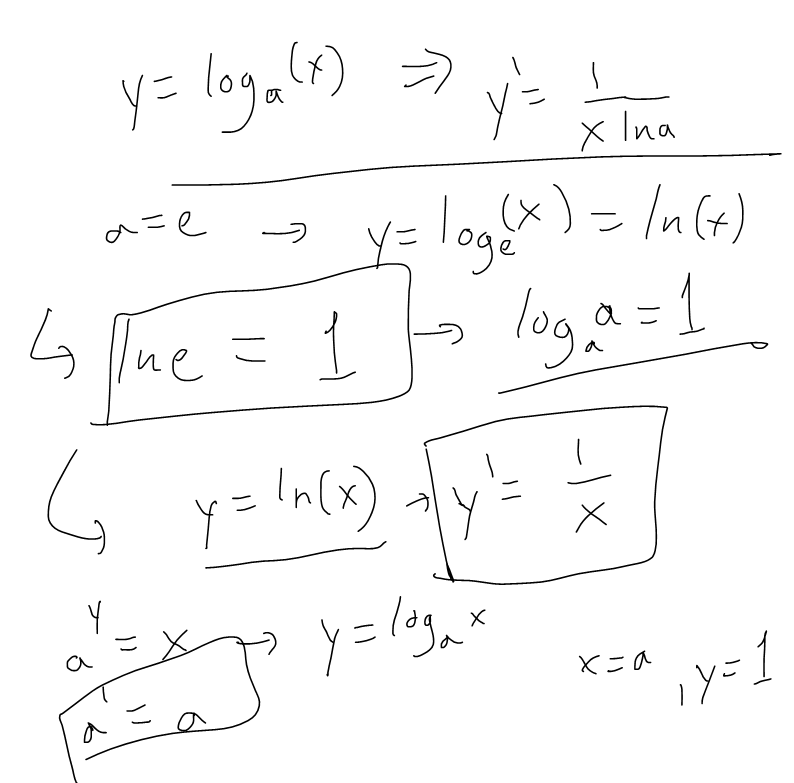 y = logₐ(x) ⇒ y' = 1/(x ln a)
a = e → y = logₑ(x) = ln(x)
↳ ln e = 1 → logₐ a = 1
↳ y = ln(x) → y' = 1/x
a^y = x → y = logₐ x
a¹ = a x = a , y = 1